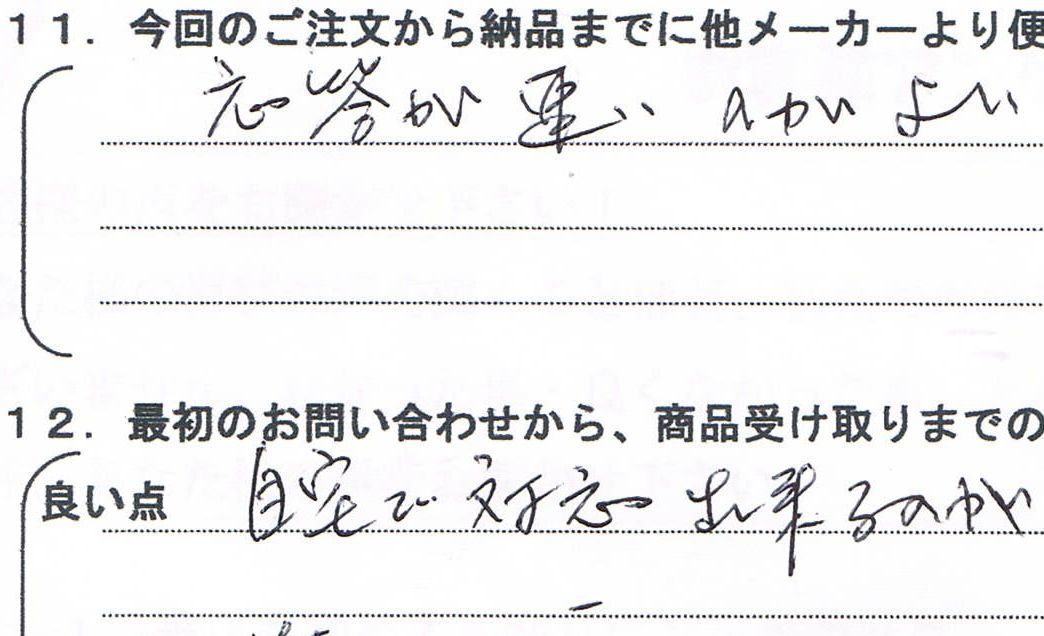 11. 今回のご注文から納品までに他メーカーより便
応答が速い のが よい
12. 最初のお問い合わせから、商品受け取りまでの
良い点 自宅で対応出来るのが